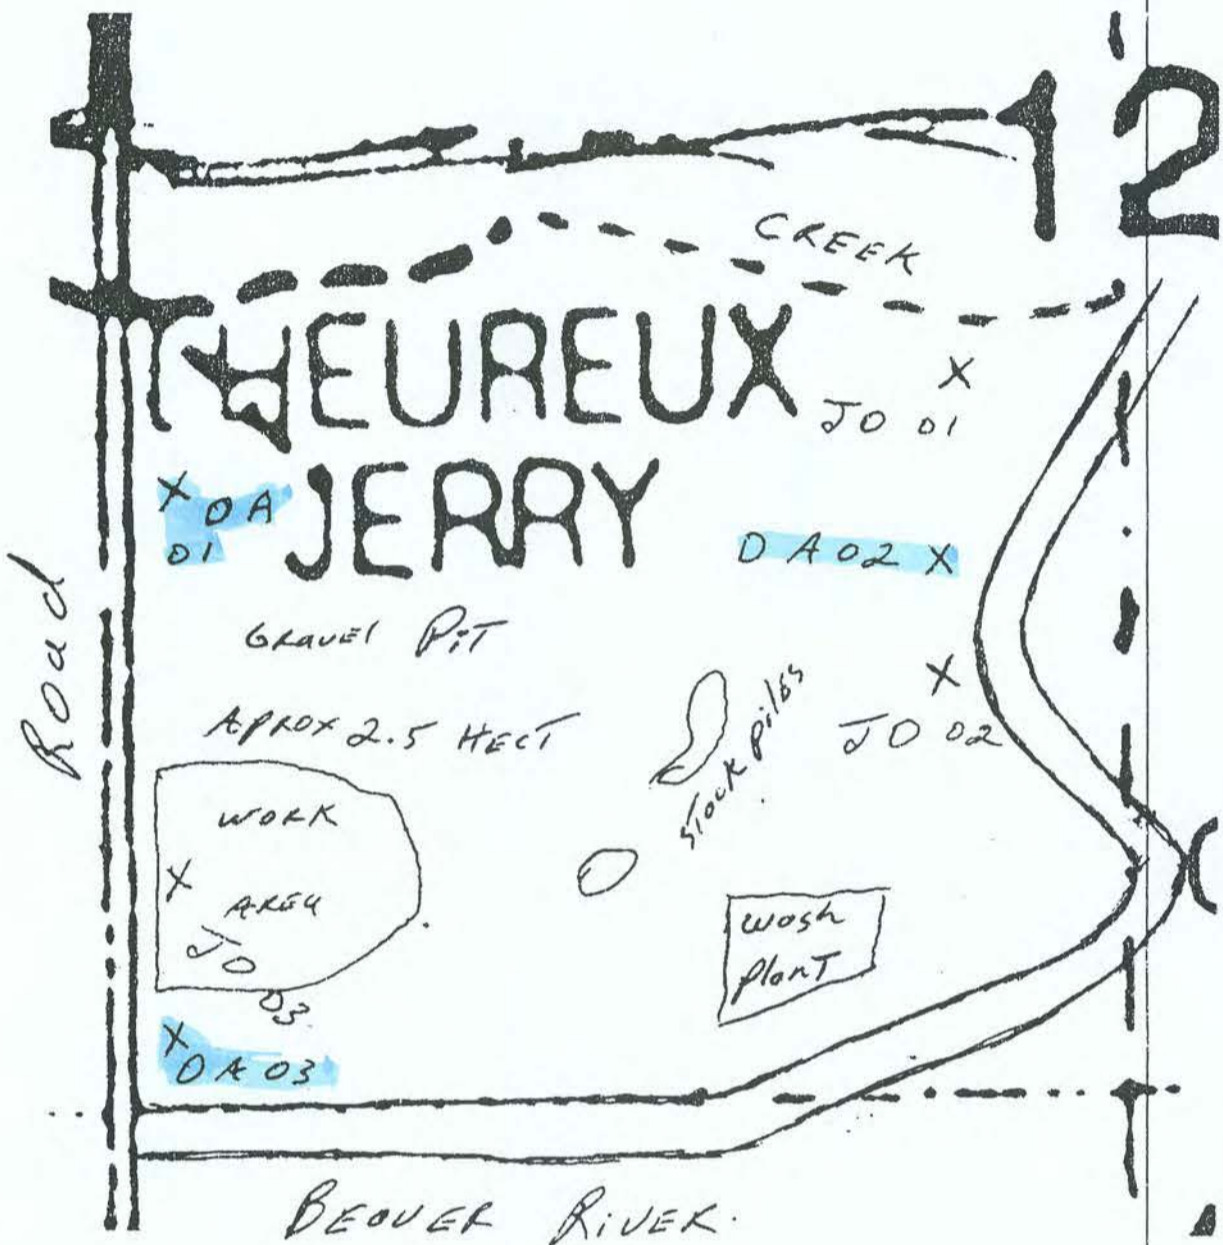 12
CREEK
L'HEUREUX
JERRY
X
JO 01
X DA
01
DA02 X
Road
GRAVEl PiT
APROX 2.5 HECT
X
JO 02
Stock piles
WORK
X
AREA
JO
03
Wash
PlanT
X
DA 03
BEOVER RiVER.